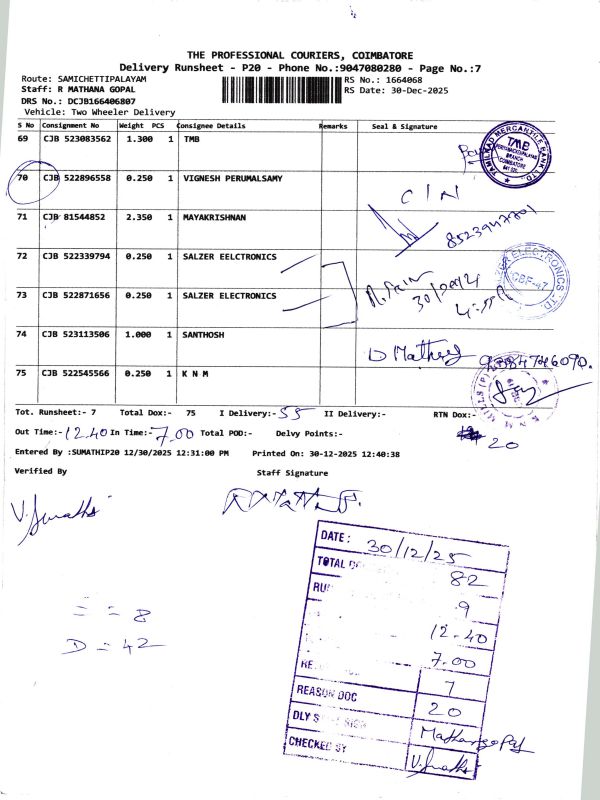 THE PROFESSIONAL COURIERS, COIMBATORE
Delivery Runsheet - P20 - Phone No.:9047080280 - Page No.:7
Route: SAMICHETTIPALAYAM
RS No.: 1664068
Staff: R MATHANA GOPAL
RS Date: 30-Dec-2025
DRS No.: DCJB166406807
Vehicle: Two Wheeler Delivery
S No Consignment No Weight PCS Consignee Details Remarks Seal & Signature
69 CJB 523083562 1.300 1 TMB
TAMILNAD MERCANTILE BANK LTD.
TMB
BRANCH
COIMBATORE
70 CJB 522896558 0.250 1 VIGNESH PERUMALSAMY
C / N
71 CJB 81544852 2.350 1 MAYAKRISHNAN
8523947701
72 CJB 522339794 0.250 1 SALZER EELCTRONICS
73 CJB 522871656 0.250 1 SALZER EELCTRONICS
CBF-47
74 CJB 523113506 1.000 1 SANTHOSH
75 CJB 522545566 0.250 1 K N M
Tot. Runsheet:- 7 Total Dox:- 75 I Delivery:- 55 II Delivery:- RTN Dox:-
20
Out Time:- 12.40 In Time:- 7.00 Total POD:- Delvy Points:-
Entered By :SUMATHIP20 12/30/2025 12:31:00 PM Printed On: 30-12-2025 12:40:38
Verified By Staff Signature
V.Sumathi
DATE: 30/12/25
TOTAL 82
9
12.40
7.00
7
REASON DOC 20
DLY SIGN Mathanagopal
CHECKED BY V.Sumathi
= = 8
D = 42